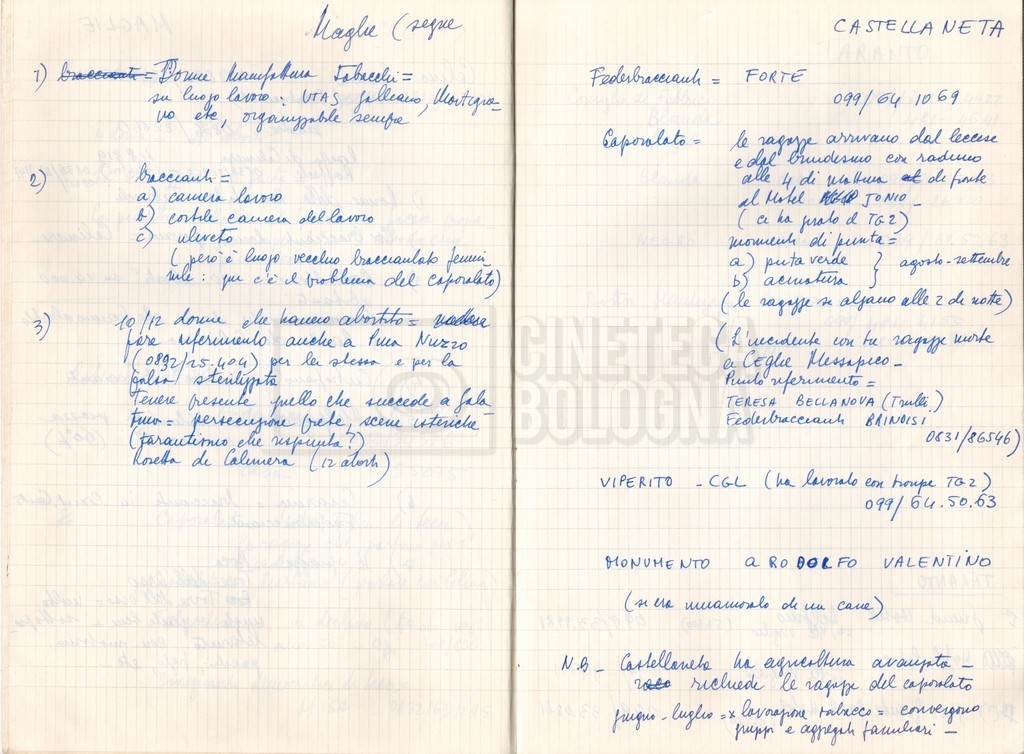 Maglie (segue
1) braccianti = Donne Manifattura Tabacchi =
su luogo lavoro: UTAS Galleano, Martigna-
no etc, organizzabile sempre
2) braccianti =
a) camera lavoro
b) cortile camera del lavoro
c) uliveto
(però è luogo vecchio bracciantato femmi-
nile: qui c'è il problema del caporalato)
3) 10/12 donne che hanno abortito =
fare riferimento anche a Pina Nuzzo
(0832/25.404) per la stessa e per la
falsa sterilizzata
Tenere presente quello che succede a Gala-
tina = persecuzione prete, scene isteriche
(tarantismo che rispunta?)
Rosetta di Calimera (12 aborti)
CASTELLANETA
Federbraccianti = FORTE
099/64 10 69
Caporalato = le ragazze arrivano dal leccese
e dal brindisino con raduno
alle 4 di mattina di fronte
al Motel JONIO
(ci ha girato il TG2)
momenti di punta =
a) puta verde } agosto-settembre
b) acinatura
(le ragazze si alzano alle 2 di notte)
(L'incidente con tre ragazze morte
a CEglie Messapico -
Punto riferimento =
TERESA BELLANOVA (Trulli)
Federbraccianti BRINDISI
0831/86546)
VIPERITO - CGL (ha lavorato con troupe TG2)
099/64.50.63
MONUMENTO a RODOLFO VALENTINO
(si era innamorato di un cane)
N.B - Castellaneta ha agricoltura avanzata -
richiede le ragazze del caporalato
giugno-luglio = x lavorazione tabacco = convergono
gruppi e aggregati familiari -
CINETECA
BOLOGNA